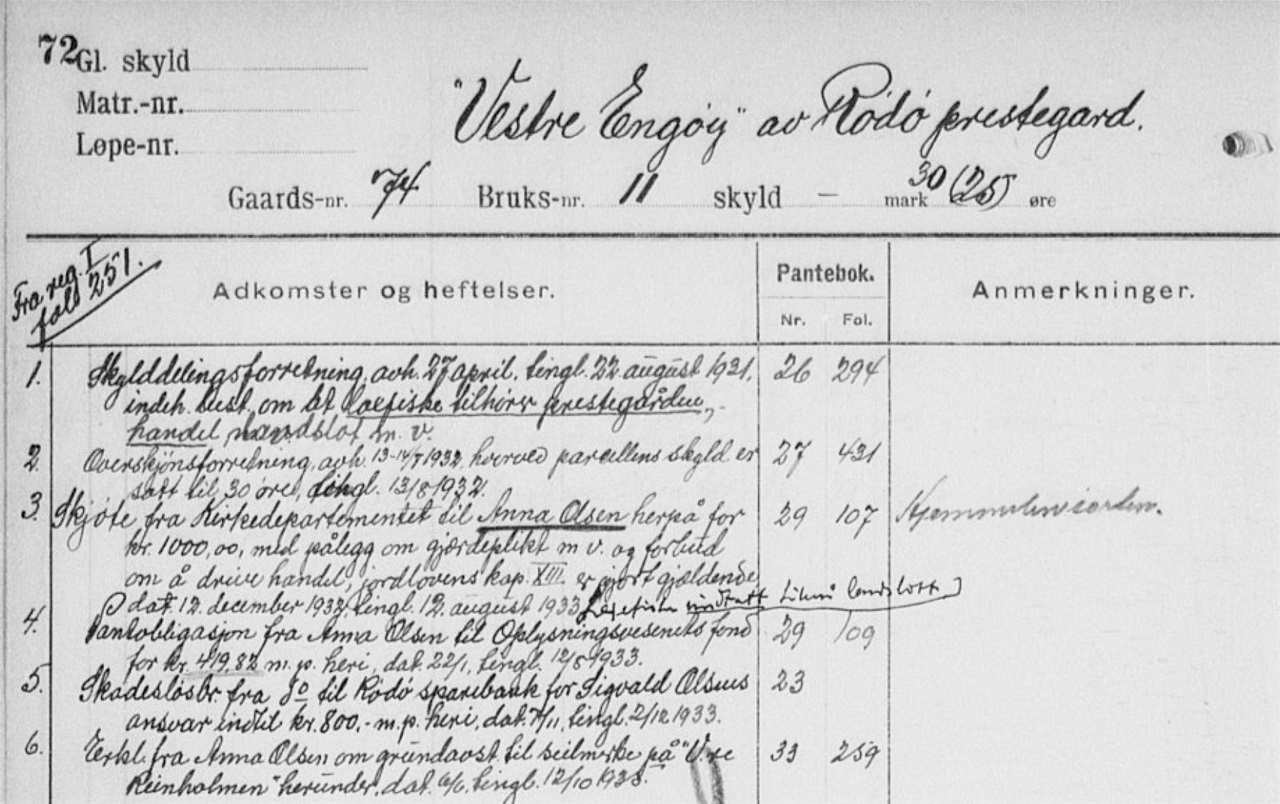 72
Gl. skyld
Matr.-nr.
Løpe-nr.
"Vestre Engøy" av Rödö prestegard.
Gaards-nr. 74 Bruks-nr. 11 skyld — mark 30 (25) øre
Fra reg. I
fol. 251.
Adkomster og heftelser.
Pantebok.
Nr. Fol.
Anmerkninger.
1. Skylddelingsforretning, avh. 27 april, tingl. 22 august 1931, 26 294
indeh. best. om at laxfiske tilhörer prestegården,
handel m. v.
2. Overskjönsforretning, avh. 13-14/7 1932, hvorved parcellens skyld er 27 431
satt til 30 öre, tingl. 13/8 1932.
3. Skjöte fra Kirkedepartementet til Anna Olsen herpå for 29 107
kr. 1000,00, med pålegg om gjærdeplikt m v. og forbud
om å drive handel, jordlovens kap. XIII. er gjort gjældende
dat. 12. december 1932, tingl. 12. august 1933
4. Pantobligasjon fra Anna Olsen til Oplysningsvesenets fond 29 109
for kr. 419,82 m. p. heri, dat. 22/1, tingl. 12/8 1933.
5. Skadeslösbr. fra do til Rödö sparebank for Sigvald Olsens 23
ansvar indtil kr. 800,- m. p. heri, dat. 7/11, tingl. 2/12 1933.
6. Erkl. fra Anna Olsen om grundavst. til seilmerke på "V.re 33 259
Reinholmen" herunder, dat. 6/6, tingl. 12/10 1938.